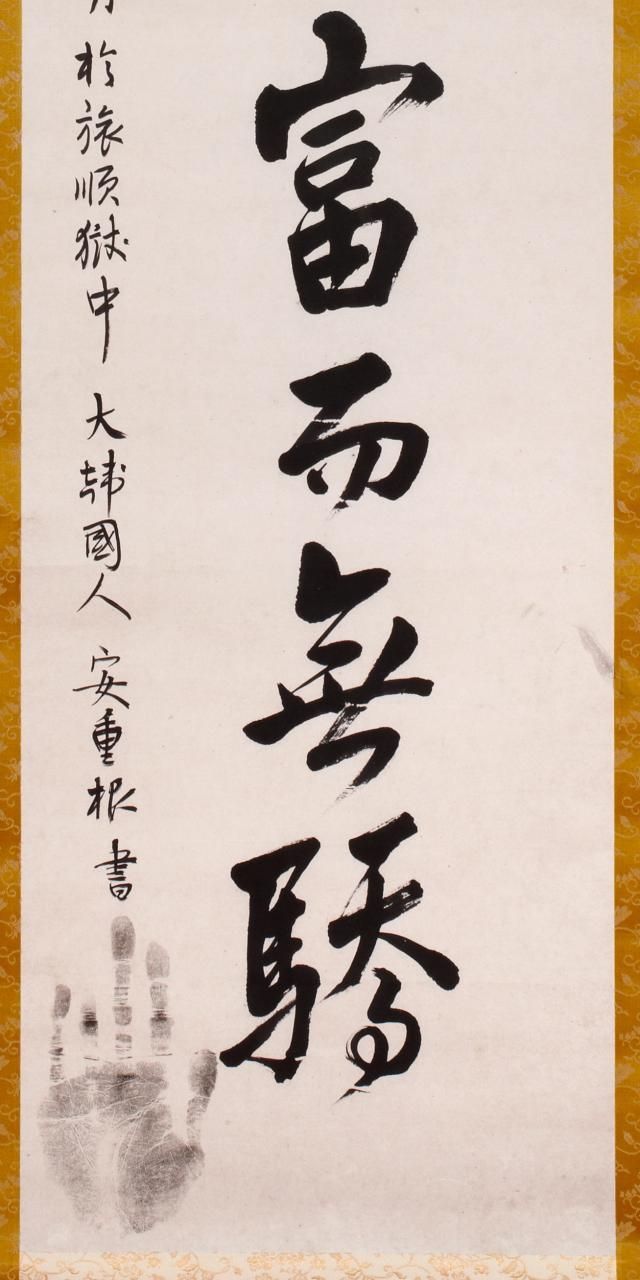 富而無驕
月於旅順獄中 大韓國人 安重根 書